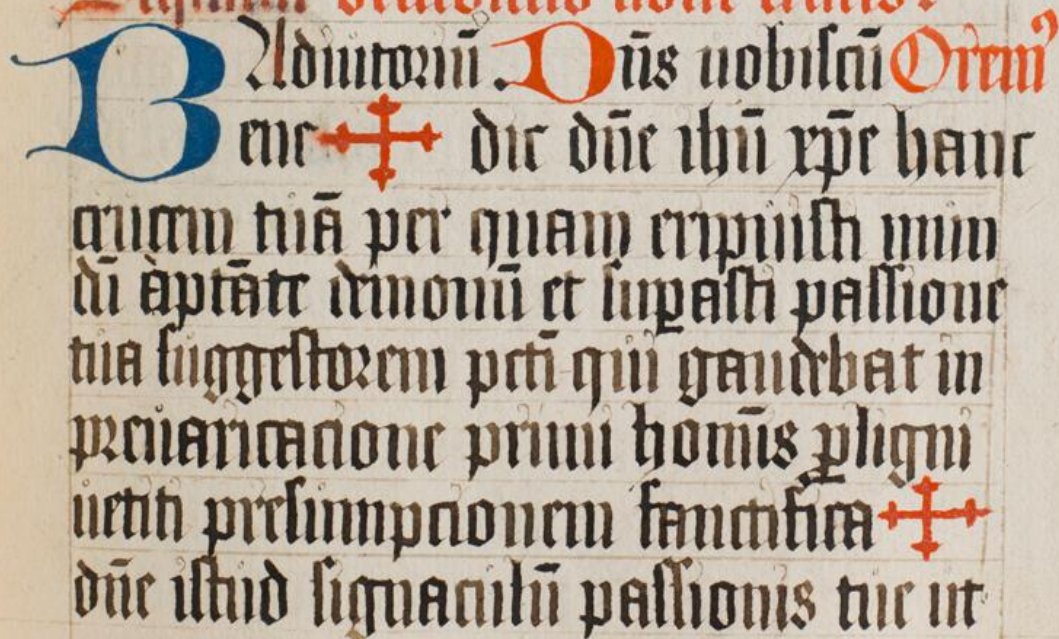 Adiutoriū. Dn̄s uobiscū Orem9
Bene ✠ dic dn̄e ihū xp̄e hanc
crucem tuā per quam eripuisti mun
dū a ptāte demonū et suꝑasti passione
tua suggestorem pcti qui gaudebat in
preuaricacione primi homīs ꝑ ligni
uetiti presumpcionem sanctifica ✠
dn̄e istud signaculū passionis tue ut